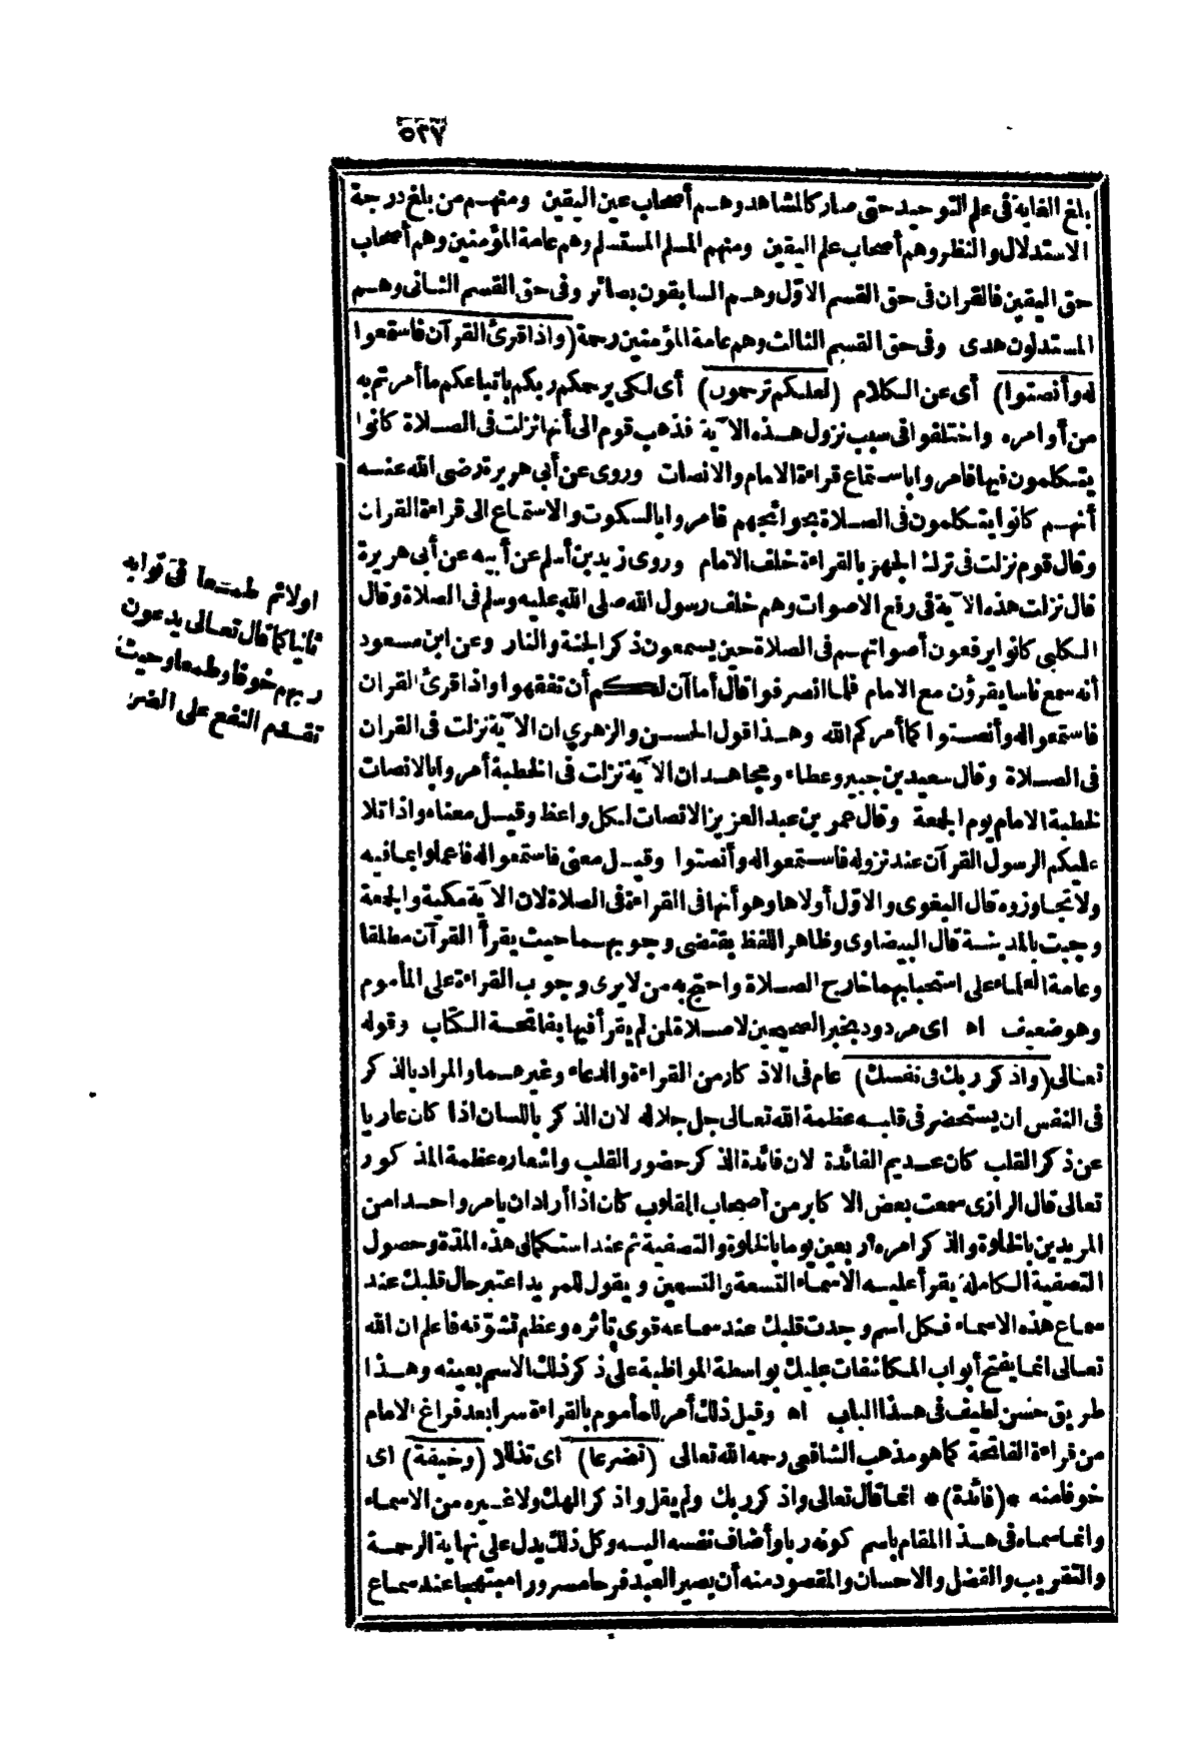 ٥٣٧
بلغ الغاية فى علم التوحيد حتى صار كالمشاهد وهم أصحاب عين اليقين ومنهم من بلغ درجة
الاستدلال والنظر وهم أصحاب علم اليقين ومنهم المسلم المستسلم وهم عامة المؤمنين وهم أصحاب
حق اليقين فالقران فى حق القسم الاوّل وهم السابقون بصائر وفى حق القسم الثانى وهم
المستدلون هدى وفى حق القسم الثالث وهم عامة المؤمنين رحمة (واذا قرئ القرآن فاستمعوا
له وأنصتوا) أى عن الكلام (لعلكم ترحمون) أى لكى يرحمكم ربكم باتباعكم ما أمرتم به
من أوامره واختلفوا فى سبب نزول هذه الآية فذهب قوم الى أنها نزلت فى الصلاة كانوا
يتكلمون فيها فامروا باستماع قراءة الامام والانصات وروى عن أبى هريرة رضى الله عنه
أنهم كانوا يتكلمون فى الصلاة بحوائجهم فامروا بالسكوت والاستماع الى قراءة القران
وقال قوم نزلت فى ترك الجهر بالقراءة خلف الامام وروى زيد بن أسلم عن أبيه عن أبى هريرة
قال نزلت هذه الآية فى رفع الاصوات وهم خلف رسول الله صلى الله عليه وسلم فى الصلاة وقال
الكلبى كانوا يرفعون أصواتهم فى الصلاة حين يسمعون ذكر الجنة والنار وعن ابن مسعود
أنه سمع ناسا يقرؤن مع الامام فلما انصرفوا قال أما آن لكم أن تفقهوا واذا قرئ القران
فاستمعوا له وأنصتوا كما أمركم الله وهذا قول الحسن والزهرى ان الآية نزلت فى القران
فى الصلاة وقال سعيد بن جبير وعطاء ومجاهد ان الآية نزلت فى الخطبة أمروا بالانصات
لخطبة الامام يوم الجمعة وقال عمر بن عبد العزيز الانصات لكل واعظ وقيل معناه واذا تلا
عليكم الرسول القرآن عند نزوله فاستمعوا له وأنصتوا وقيل معنى فاستمعوا له فاعملوا بما فيه
ولا تجاوزوه قال البغوى والاوّل أولاها وهو أنها فى القراءة فى الصلاة لان الآية مكية والجمعة
وجبت بالمدينة قال البيضاوى وظاهر اللفظ يقتضى وجوبهما حيث يقرأ القرآن مطلقا
وعامة العلماء على استحبابهما خارج الصلاة واحتج به من لا يرى وجوب القراءة على المأموم
وهو ضعيف اه اى مردود بخبر الصحيحين لا صلاة لمن لم يقرأ فيها بفاتحة الكتاب وقوله
تعالى (واذكر ربك فى نفسك) عام فى الاذكار من القراءة والدعاء وغيرهما والمراد بالذكر
فى النفس ان يستحضر فى قلبه عظمة الله تعالى جل جلاله لان الذكر باللسان اذا كان عاريا
عن ذكر القلب كان عديم الفائدة لان فائدة الذكر حضور القلب واشعاره عظمة المذكور
تعالى قال الرازى سمعت بعض الاكابر من أصحاب القلوب كان اذا أراد ان يامر واحدا من
المريدين بالخلوة والذكر امره أربعين يوما بالخلوة والتصفية ثم عند استكمال هذه المدّة وحصول
التصفية الكاملة يقرأ عليه الاسماء التسعة والتسعين ويقول للمريد اعتبر حال قلبك عند
سماع هذه الاسماء فكل اسم وجدت قلبك عند سماعه قوى تأثره وعظم تشوّقه فاعلم ان الله
تعالى انما يفتح أبواب المكاشفات عليك بواسطة المواظبة على ذكر ذلك الاسم بعينه وهذا
طريق حسن لطيف فى هذا الباب اه وقيل ذلك أمر للمأموم بالقراءة سرا بعد فراغ الامام
من قراءة الفاتحة كما هو مذهب الشافعى رحمه الله تعالى (تضرعا) اى تذللا (وخيفة) اى
خوفا منه *(فائدة)* انما قال تعالى واذكر ربك ولم يقل واذكر الهك ولا غيره من الاسماء
وانما سماه فى هذا المقام باسم كونه ربا وأضاف نفسه اليه وكل ذلك يدل على نهاية الرحمة
والتقريب والفضل والاحسان والمقصود منه أن يصير العبد فرحا مسرورا مبتهجا عند سماع
اولا ثم طمعا فى ثوابه
ثانيا كما قال تعالى يدعون
ربهم خوفا وطمعا وحيث
تقدّم النفع على الضر